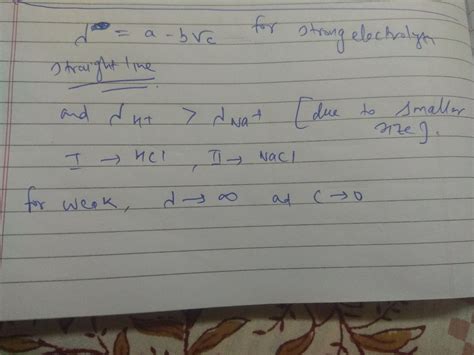 λ = a - b√c for strong electrolyte
straight line
and λH+ > λNa+ [due to smaller
size].
I → HCl, II → NaCl
for weak, λ → ∞ as C → 0